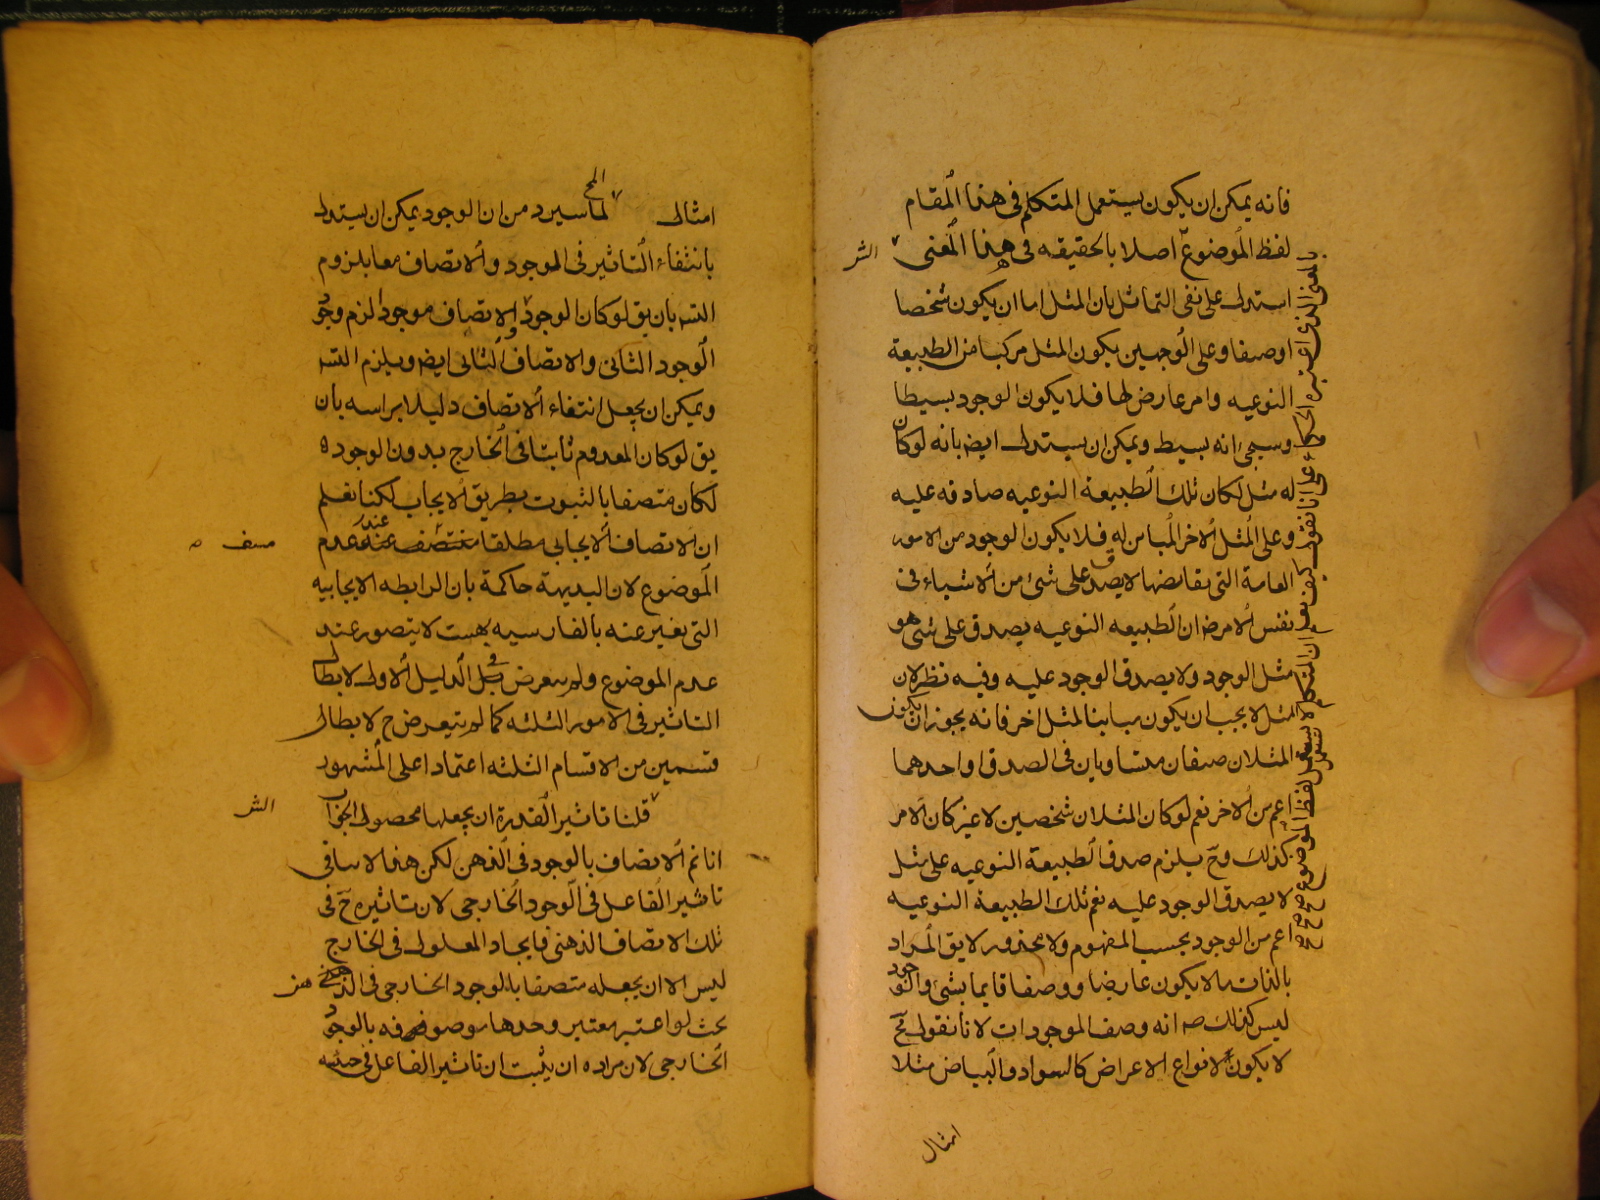 فانه يمكن ان يكون يستعمل المتكلم فى هذا المقام
لفظ الموضوع اصلا بالحقيقه فى هذا المعنى
الشر
استدل على نفى التماثل بان المثل اما ان يكون شخصا
او صنفا وعلى الوجهين يكون المثل مركبا من الطبيعة
النوعيه وامر عارض لها فلا يكون الوجود بسيطا
وسيجئ انه بسيط ويمكن ان يستدل ايض بانه لو كان
له مثل لكان تلك الطبيعة النوعيه صادقه عليه
وعلى المثل الاخر المباين له فلا يكون الوجود من الامور
العامة التى نقايضها لا يصدق على شئ من الاشياء فى
نفس الامر ضه ان الطبيعه النوعيه يصدق على شئ هو
مثل الوجود ولا يصدق الوجود عليه وفيه نظر لان
المثل لا يجب ان يكون مباينا لمثل اخر فانه يجوز ان يكون
المثلان صنفان متساويان فى الصدق او احدهما
اعم من الاخر نعم لو كان المثلان شخصين لا غير كان الامر
كذلك وح يلزم صدق الطبيعة النوعيه على مثل
لا يصدق الوجود عليه نعم تلك الطبيعة النوعيه
اعم من الوجود بحسب المفهوم ولا محذور لا يق المراد
بالذات ما لا يكون عارضا ووصفا قايما بشئ والوجود
ليس كذلك ضه انه وصف الموجودات لانا نقول فح
لا يكون لانواع الاعراض كالسواد والبياض مثلا
بالمعنى الذى اعتبره الحكماء على انا نقول كيف يعلم ان المتكلم لا يستعمل لفظ الموضوع صح صح
امثال
امثال المح لما سيرد من ان الوجود يمكن ان يستدل
بانتفاء التاثير فى الموجود والاتصاف معا بلزوم
التسه بان يق لو كان الوجود والاتصاف موجودا لزم وجود
الوجود الثانى والاتصاف الثانى ايض ويلزم التسه
ويمكن ان يجعل انتفاء الاتصاف دليلا براسه بان
يق لو كان المعدوم ثابتا فى الخارج بدون الوجود ه
لكان متصفا بالثبوت بطريق الايجاب لكنا نعلم
ان الاتصاف الايجابى مطلقا عند عدم
الموضوع لان البديهة حاكمة بان الرابطه الايجابيه
التى نعبر عنه بالفارسيه بهست لا يتصور عند
عدم الموضوع ولم يتعرض فى الدليل الاول لابطال
التاثير فى الامور الثلثه كما لم يتعرض ح لابطال
قسمين من الاقسام الثلثه اعتمادا على المشهور
قلنا تاثير القدرة ان يجعلها محصول الجواب
الشر
انا نم الاتصاف بالوجود فى الذهن لكن هذا لا ينافى
تاثير الفاعل فى الوجود الخارجى لان تاثيره ح فى
تلك الاتصاف الذهنى فايجاد المعلول فى الخارج
ليس الا ان يجعله متصفا بالوجود الخارجى فى الذهن
بحث لو اعتبر معتبر وحدها موصوفه بالوجود
الخارجى لان مراده ان يثبت ان تاثير الفاعل فى